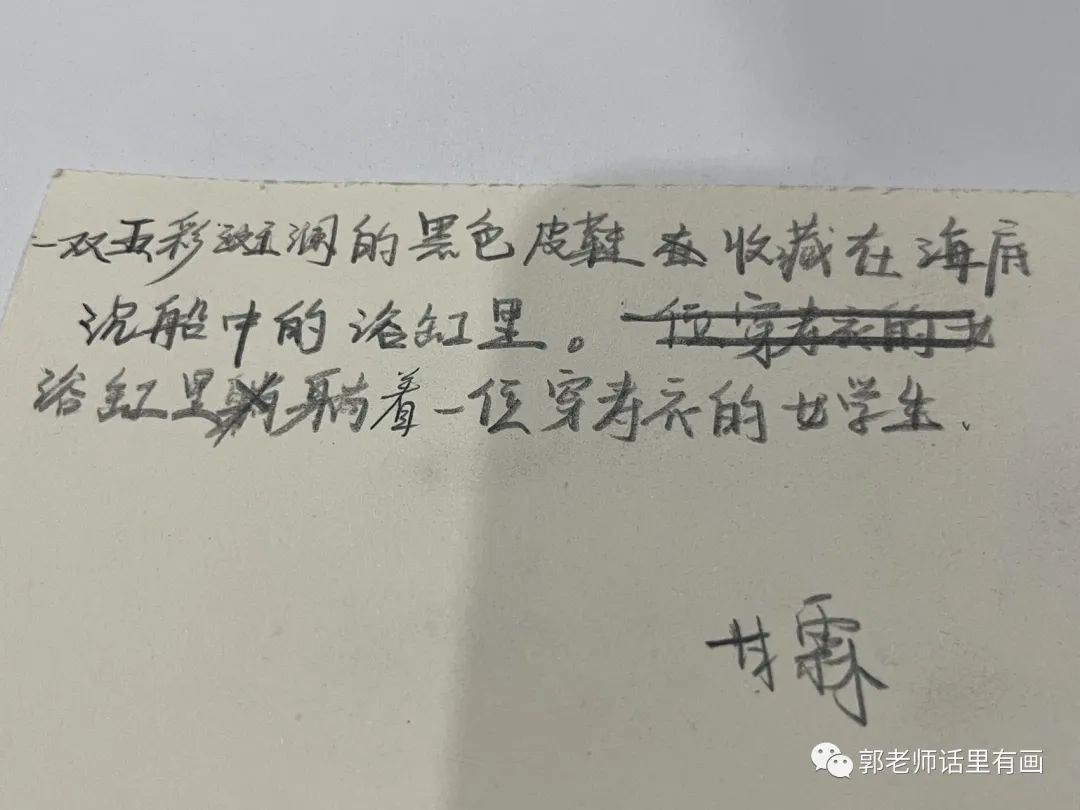 一双五彩斑斓的黑色皮鞋在收藏在海底
沉船中的浴缸里。一位穿寿衣的女
浴缸里躺着一位穿寿衣的女学生.
甘霖
郭老师话里有画